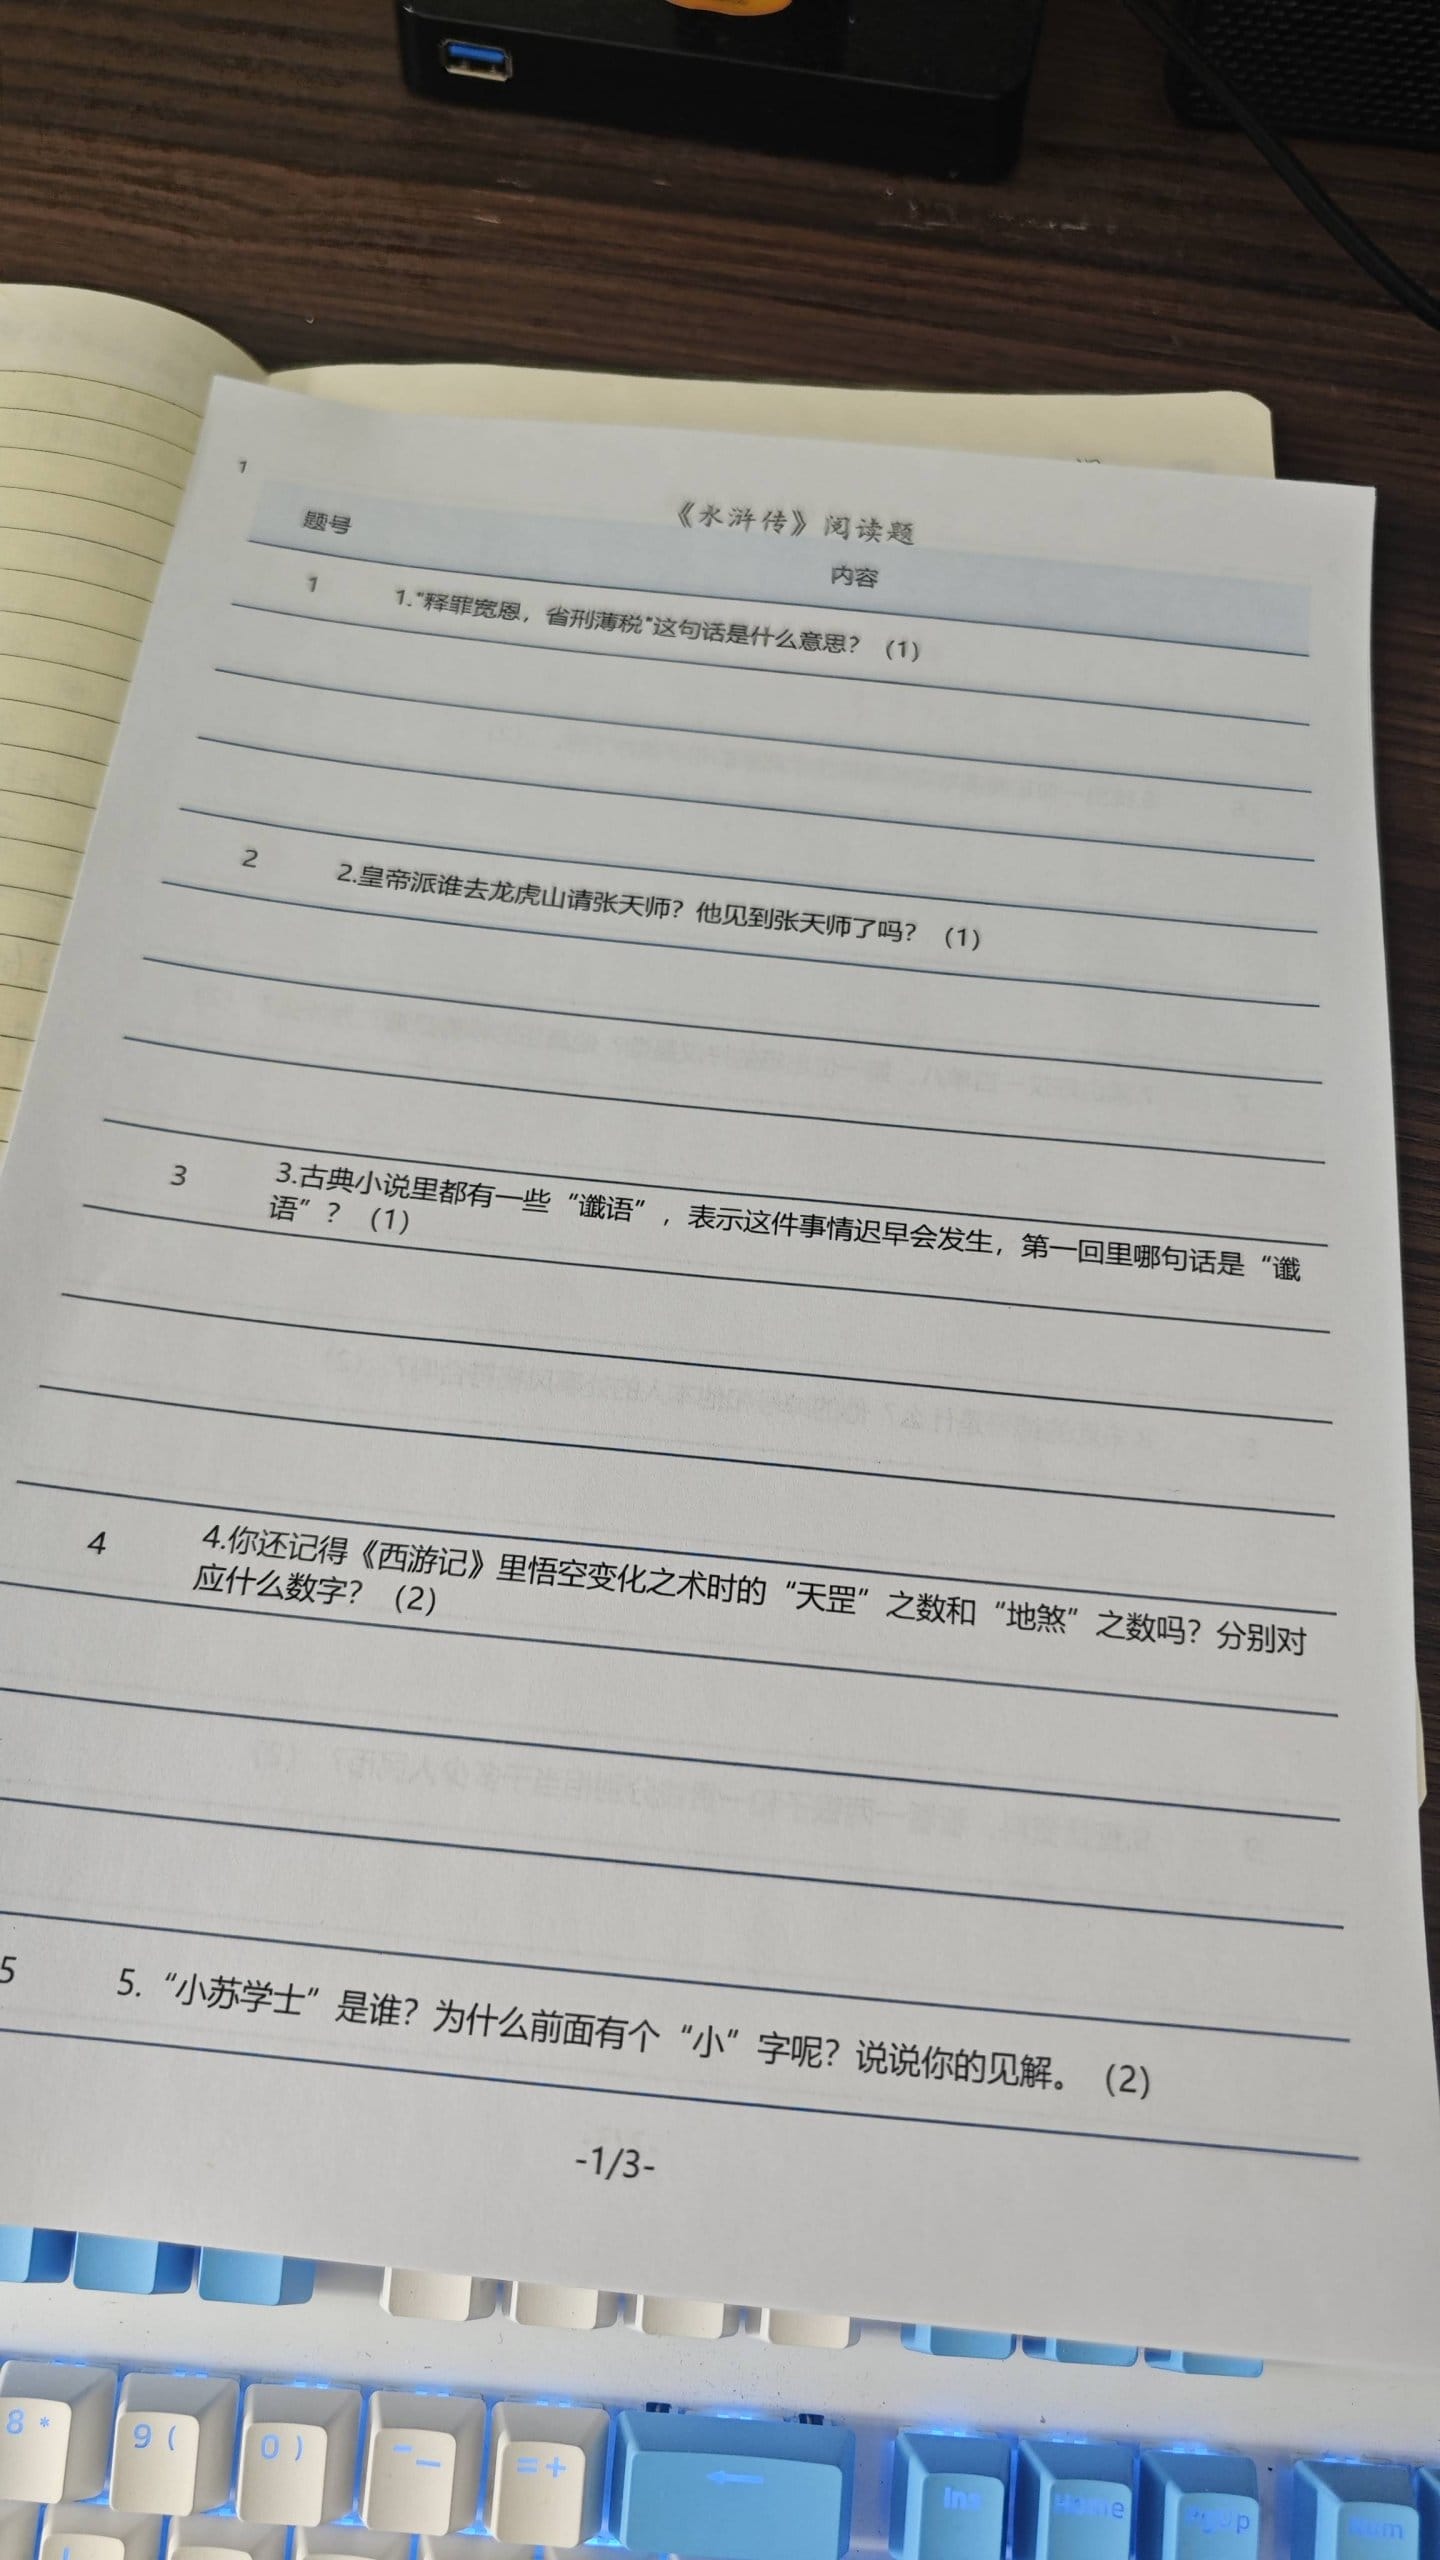 1
《水浒传》阅读题
题号 内容
1 1."释罪宽恩，省刑薄税"这句话是什么意思？（1）
2 2.皇帝派谁去龙虎山请张天师？他见到张天师了吗？（1）
3 3.古典小说里都有一些“谶语”，表示这件事情迟早会发生，第一回里哪句话是“谶
语”？（1）
4 4.你还记得《西游记》里悟空变化之术时的“天罡”之数和“地煞”之数吗？分别对
应什么数字？（2）
5 5.“小苏学士”是谁？为什么前面有个“小”字呢？说说你的见解。（2）
-1/3-
8 * 9 ( 0 ) - _ = + ← Ins Home PgUp Num